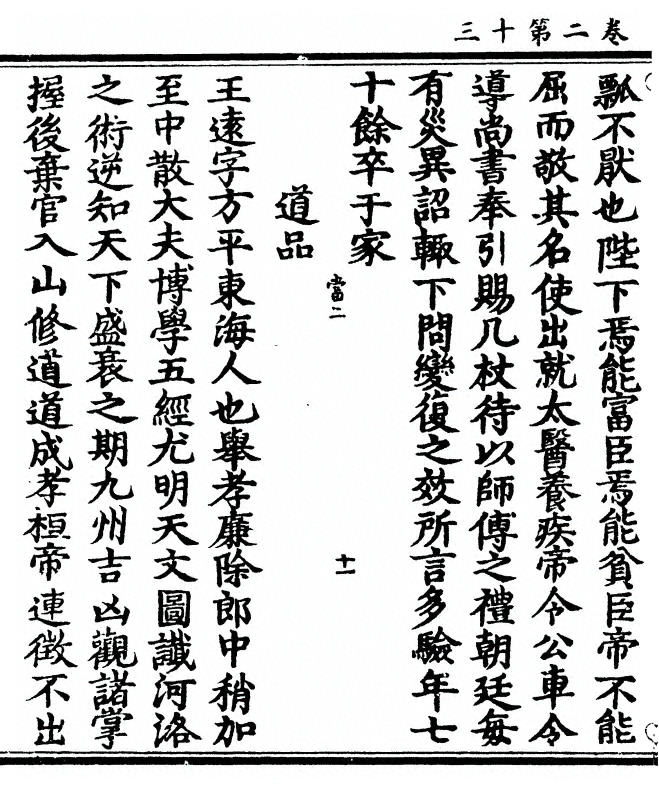 卷二第十三
瓢不厭也陛下焉能富臣焉能貧臣帝不能
屈而敬其名使出就太醫養疾帝令公車令
導尚書奉引賜几杖待以師傅之禮朝廷每
有災異詔輙下問變復之效所言多驗年七
十餘卒于家
道品
當二
十一
王遠字方平東海人也舉孝廉除郎中稍加
至中散大夫博學五經尤明天文圖讖河洛
之術逆知天下盛衰之期九州吉凶觀諸掌
握後棄官入山修道道成孝桓帝連徵不出